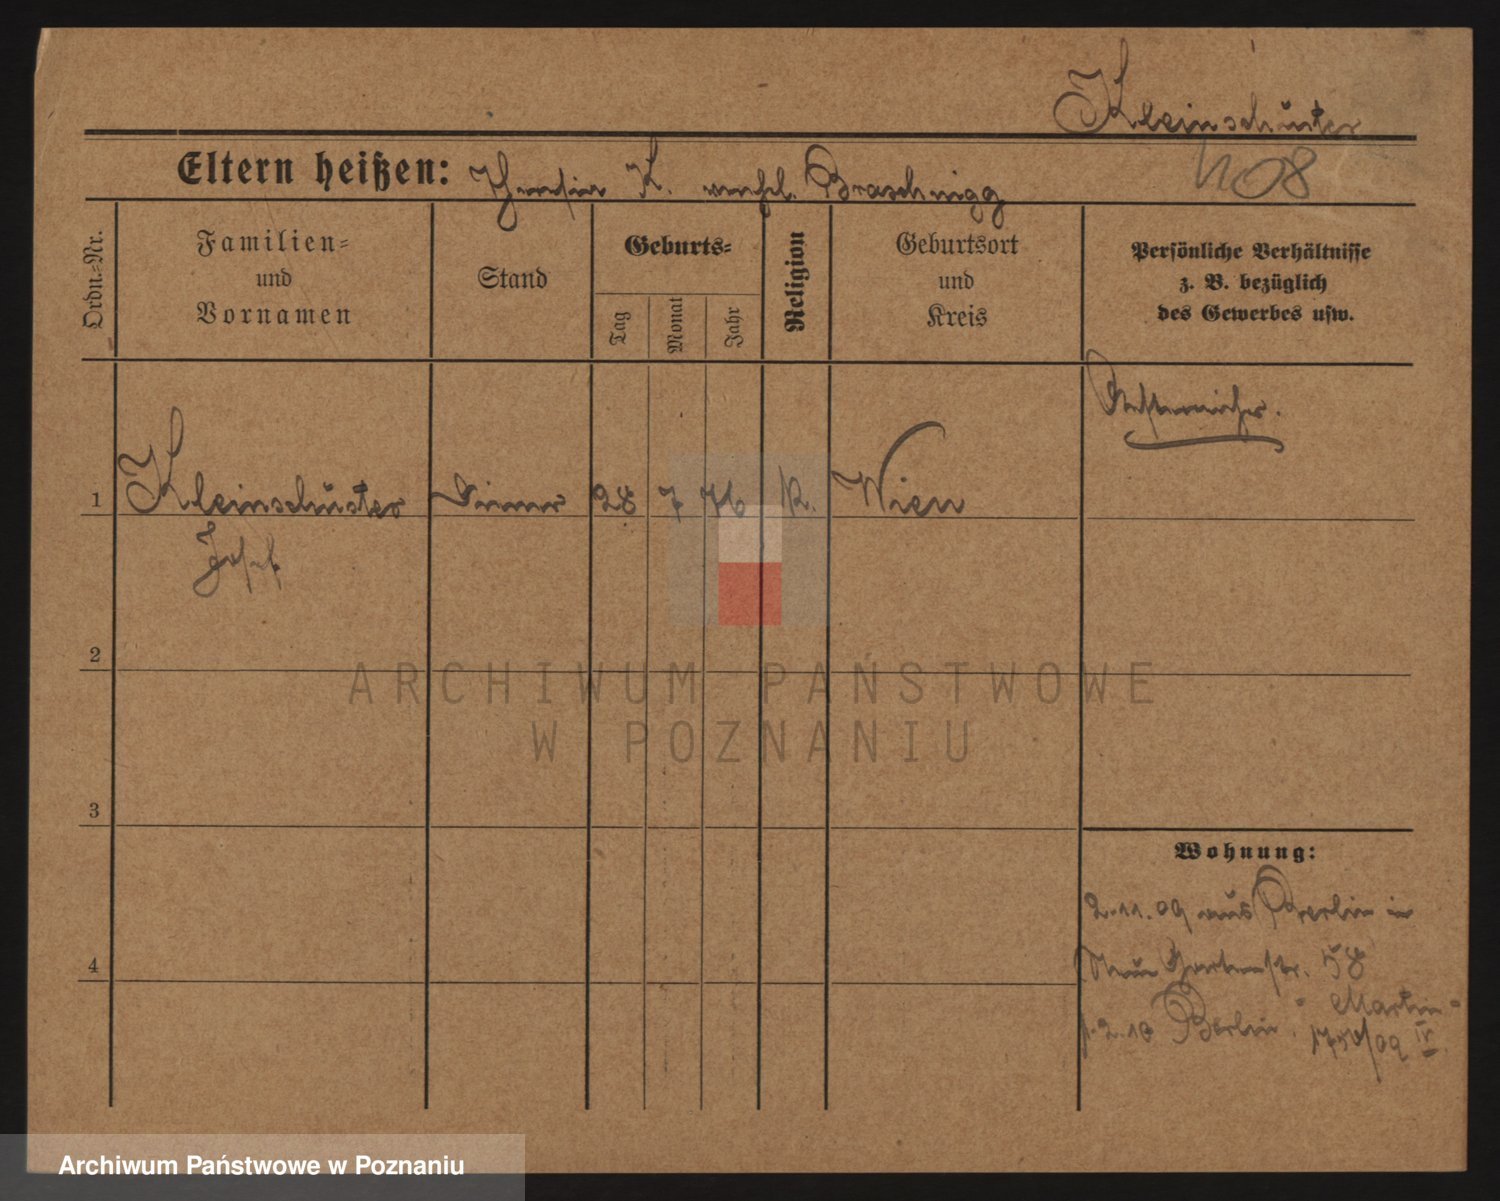 Kleinschuster
Eltern heißen: Theresia K. verehl. Braschnigg
Ordn.-Nr.
Familien-
und
Vornamen
Stand
Geburts-
Tag
Monat
Jahr
Religion
Geburtsort
und
Kreis
Persönliche Verhältnisse
z. B. bezüglich
des Gewerbes usw.
Oesterreicher.
1 Kleinschuster Diener 28 7 76 k. Wien
Josef
2
ARCHIWUM PAŃSTWOWE
W POZNANIU
3
Wohnung:
2.11.09 aus Berlin in
Neue Gartenstr. 58
4
Martin
1.2.10 Berlin.
Archiwum Państwowe w Poznaniu